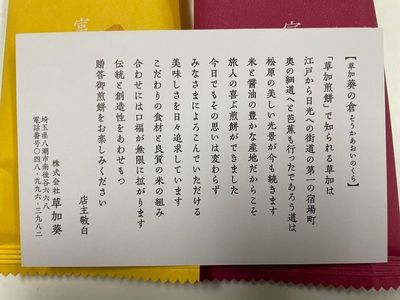 【草加葵の倉 そうかあおいのくら】
「草加煎餅」で知られる草加は
江戸から日光への街道の第一の宿場町
奥の細道へと芭蕉も行ったであろう道は
松原の美しい光景が今も続きます
米と醤油の豊かな産地だからこそ
旅人の喜ぶ煎餅ができました
今日でもその思いは変わらず
みなさまによろこんでいただける
美味しさを日々追求しています
こだわりの食材と良質の米の組み
合わせには口福が無限に拡がります
伝統と創造性をあわせもつ
贈答御煎餅をお楽しみください
店主敬白
株式会社 草加葵
埼玉県八潮市南後谷六六八
電話番号〇四八-九九六-三九八二
富
富